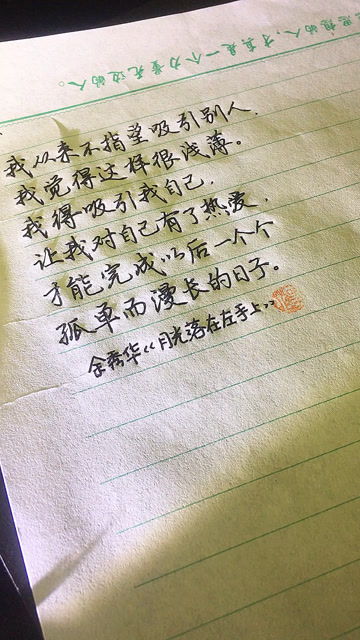 思想的人，才真是一个力量无边的人。
我从来不指望吸引别人，
我觉得这样很浅薄。
我得吸引我自己，
让我对自己有了热爱，
才能完成以后一个个
孤单而漫长的日子。
余秀华《月光落在左手上》